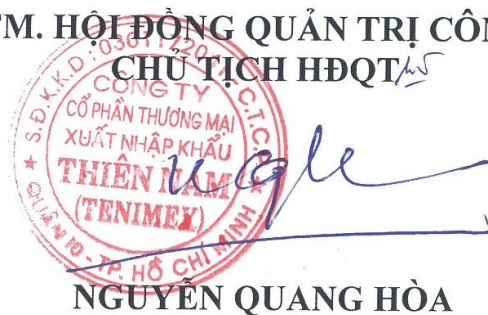 TM. HỘI ĐỒNG QUẢN TRỊ CÔN
CHỦ TỊCH HĐQT
S.Đ.K.K.D: C.T.C.P
CÔNG TY
CỔ PHẦN THƯƠNG MẠI
XUẤT NHẬP KHẨU
THIÊN NAM
(TENIMEX)
QUẬN 10 - TP. HỒ CHÍ MINH
NGUYỄN QUANG HÒA